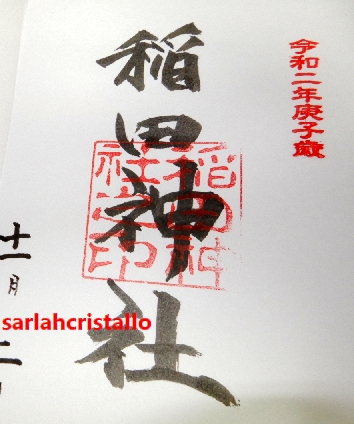 令和二年庚子歳
稲田神社
稲田神社之印
十一月二
sarlahcristallo